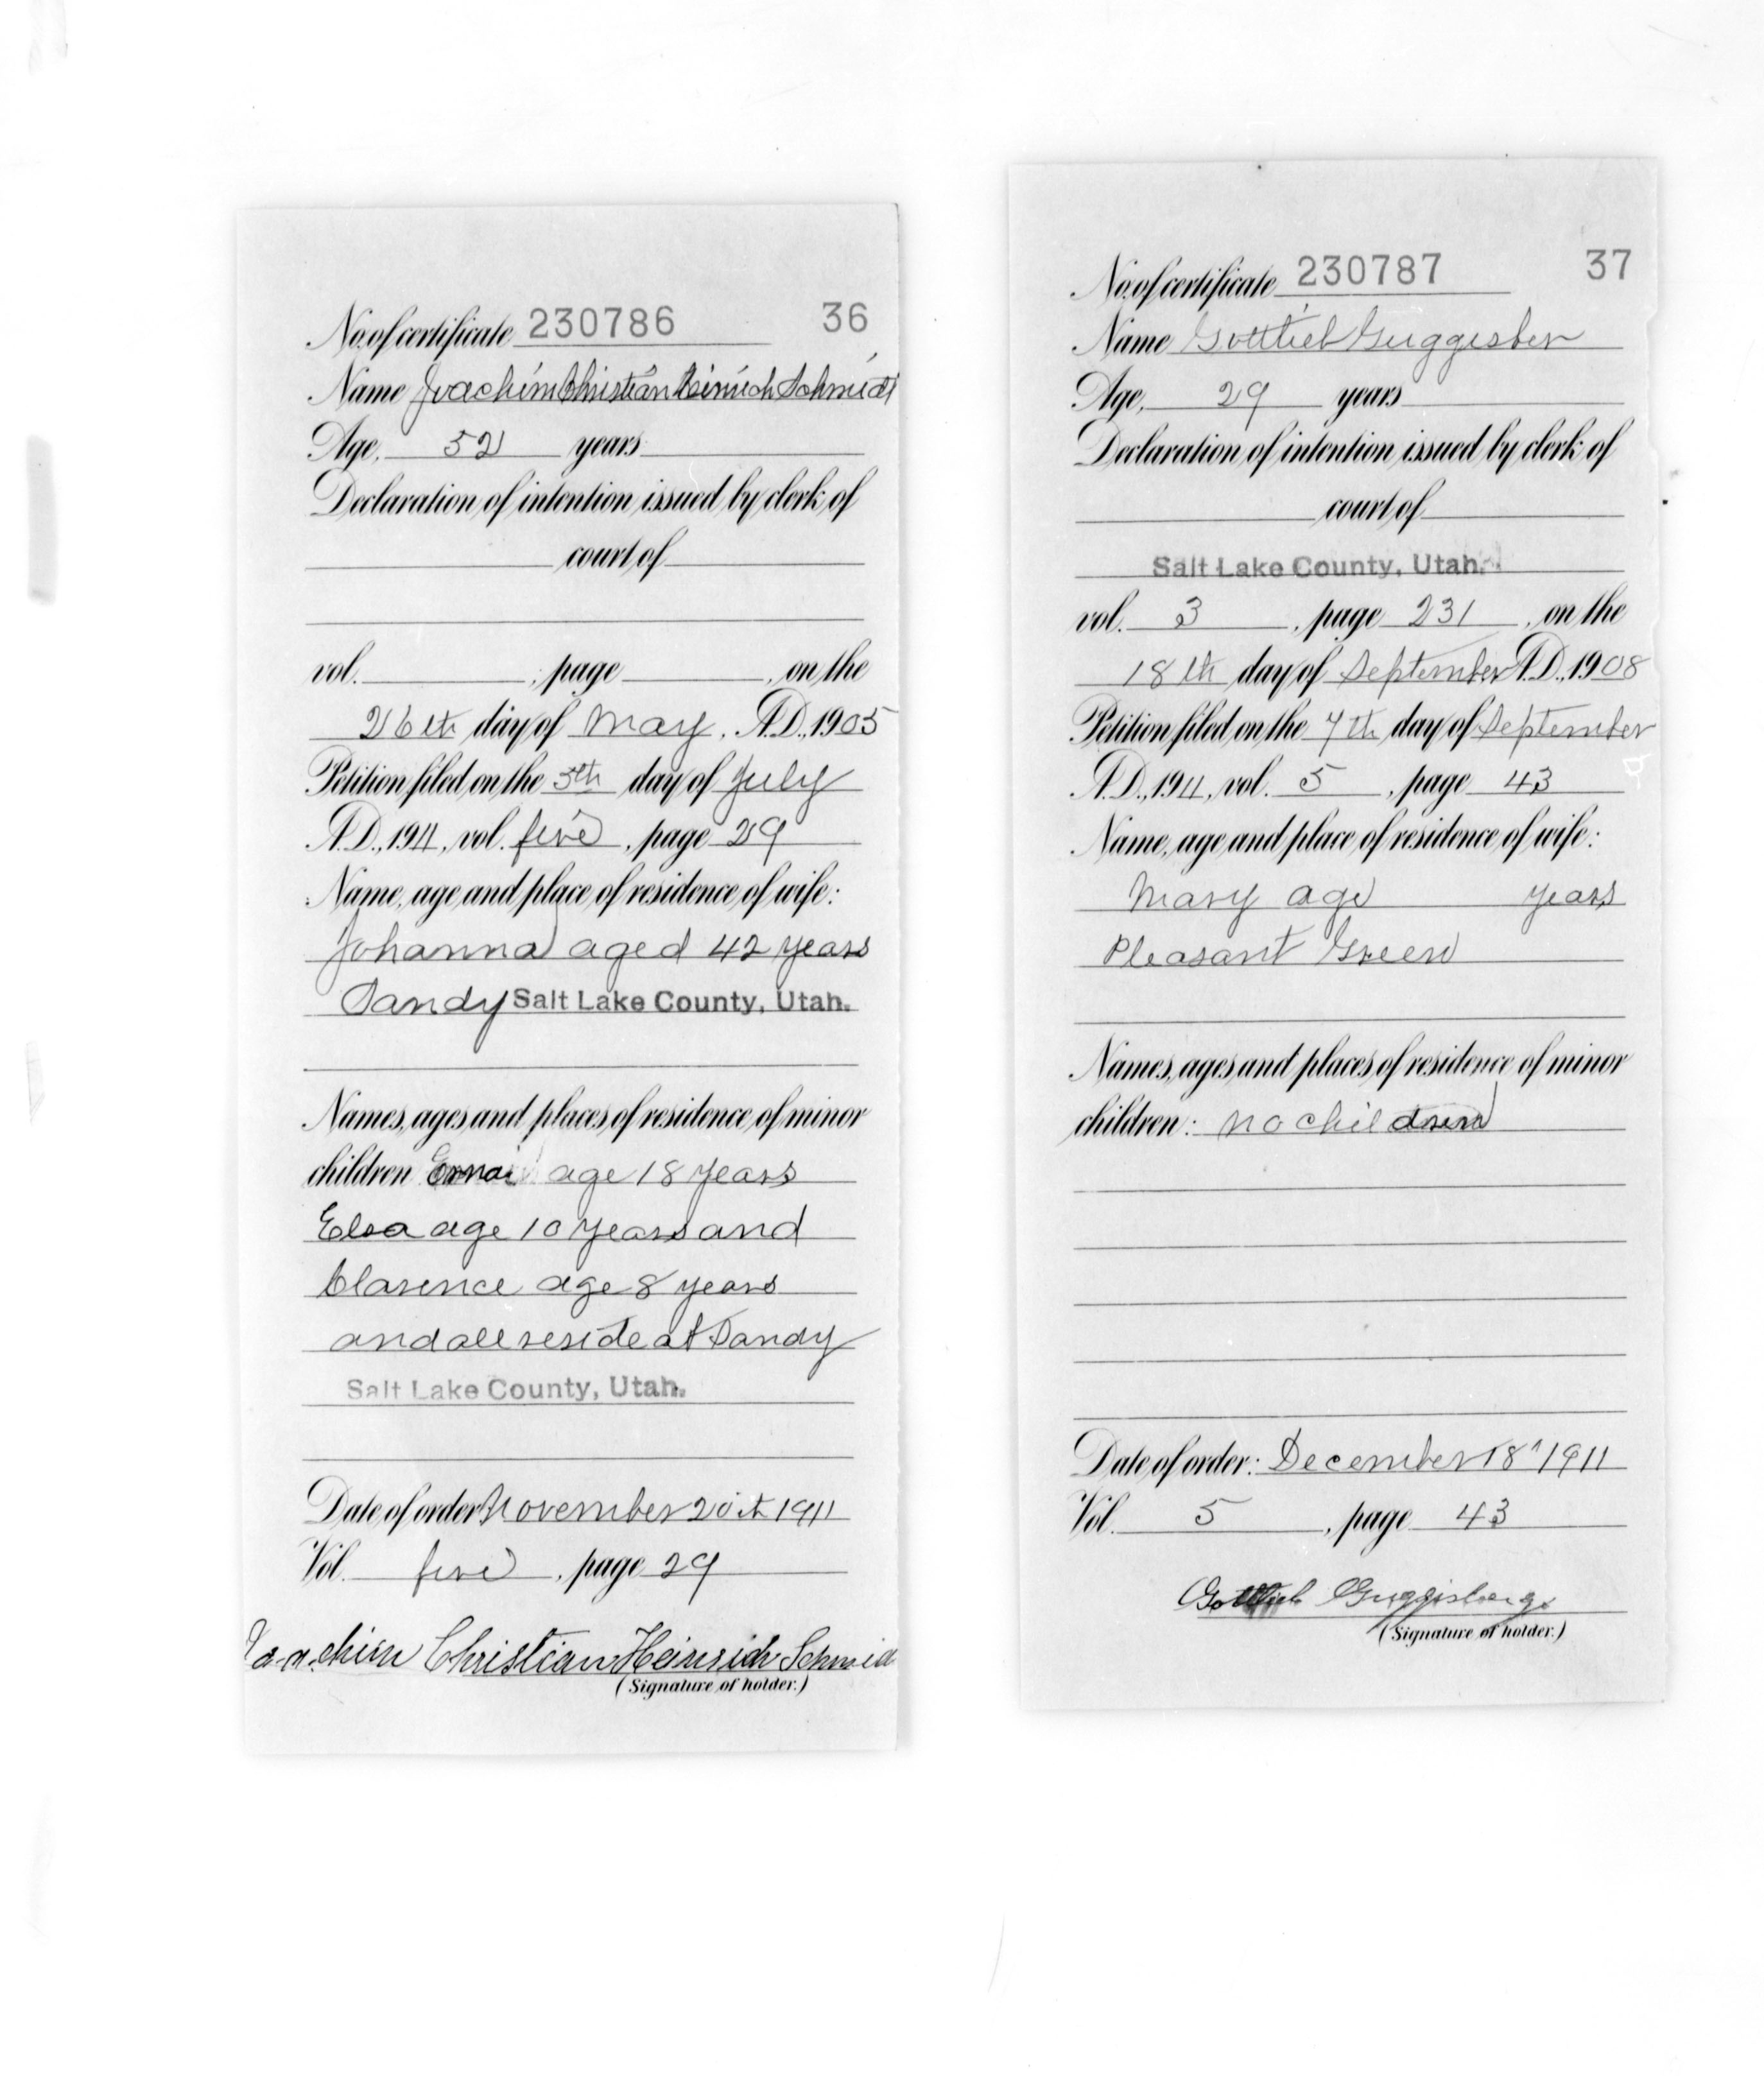 No. of certificate 230786 36
Name Joachim Christian Heinrich Schmidt
Age, 52 years
Declaration of intention issued by clerk of
court of
vol. , page , on the
26th day of May, A.D., 1905
Petition filed on the 5th day of July
A.D., 1911, vol. five, page 29
Name, age and place of residence of wife:
Johanna aged 42 years
Sandy Salt Lake County, Utah.
Names, ages and places of residence of minor
children age 18 years
Elsa age 10 years and
Clarence age 8 years
and all reside at Sandy
Salt Lake County, Utah.
Date of order November 20th 1911
Vol. five, page 29
Joachim Christian Heinrich Schmid
(Signature of holder.)
No. of certificate 230787 37
Name Gottlieb Guggisber
Age, 29 years
Declaration of intention issued by clerk of
court of
Salt Lake County, Utah.
vol. 3, page 231, on the
18th day of September A.D., 1908
Petition filed on the 7th day of September
A.D., 1911, vol. 5, page 43
Name, age and place of residence of wife:
Mary age years
Pleasant Green
Names, ages and places of residence of minor
children: no children
Date of order: December 18" 1911
Vol. 5, page 43
Gottlieb Guggisberg
(Signature of holder.)